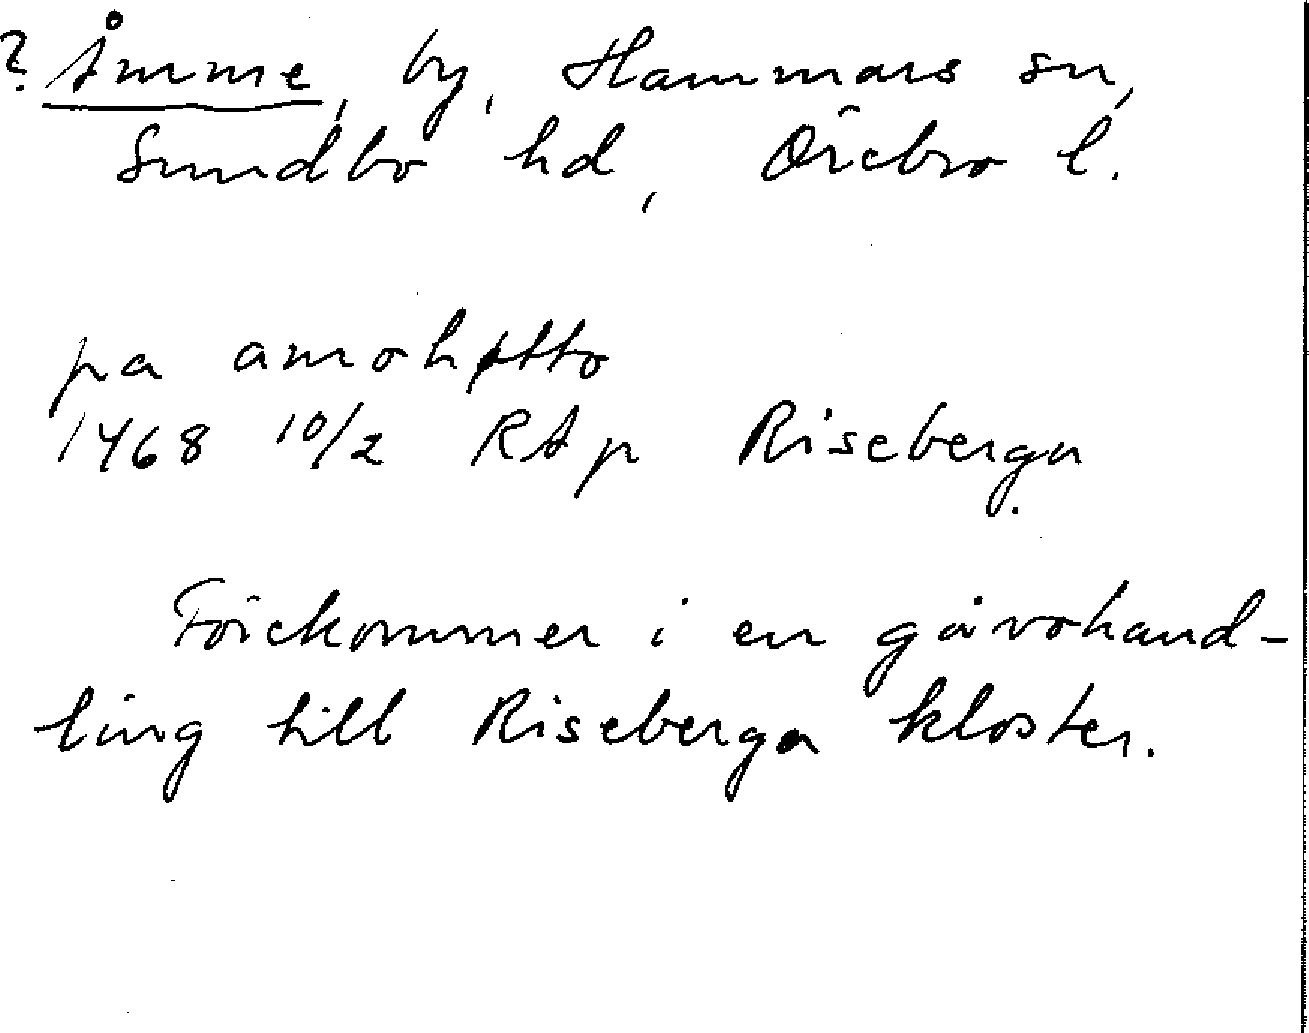 ? Åmme, by, Hammars sn,
Sundbo hd, Örebro l.
pa amohøtto
1468 10/2 RAp Riseberga
Förekommer i en gåvohand-
ling till Riseberga kloster.